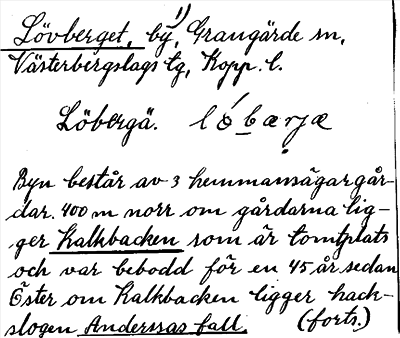 Lövberget, by, 1) Grangärde sn,
Västerbergslags tg, Kopp. l.
Löbergä. lóbærjæ
Byn består av 3 hemmansägargår-
dar. 400 m norr om gårdarna lig-
ger Kalkbacken som är tomtplats
och var bebodd för en 45 år sedan
Öster om Kalkbacken ligger hack-
slogen Anderssas fall. (forts.)